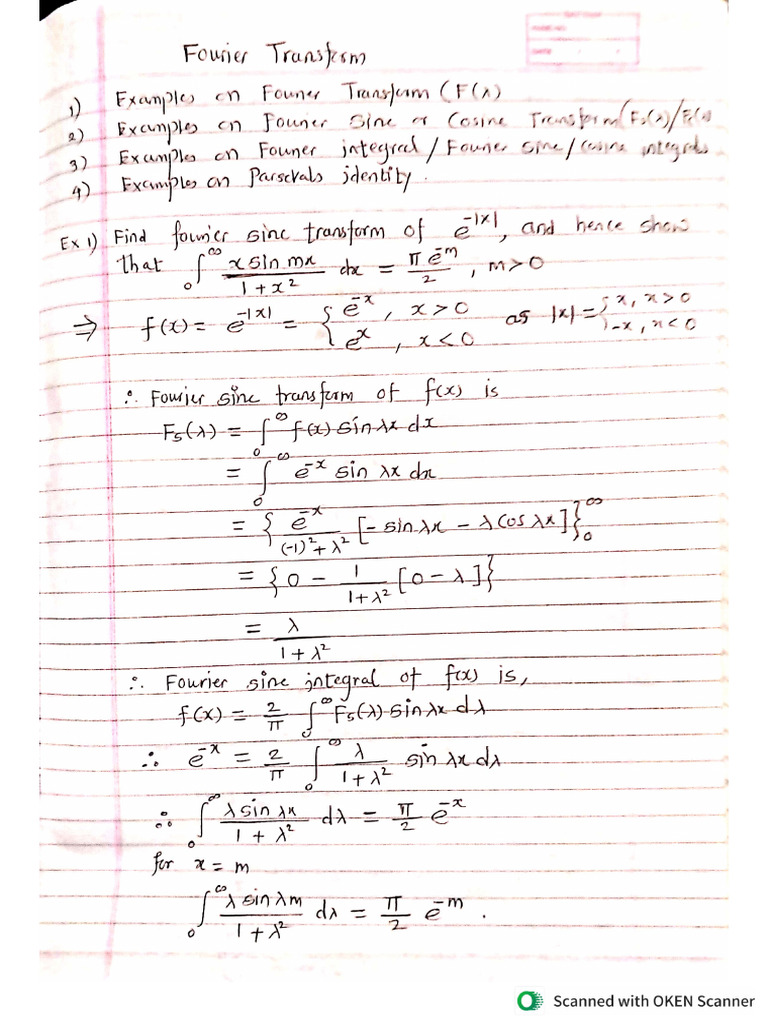 Fourier Transform
1) Examples on Fourier Transform (F(λ)
2) Examples on Fourier Sine or Cosine Transform (Fs(λ)/Fc(λ)
3) Examples on Fourier integral / Fourier sine / cosine integrals
4) Examples on Parsevals identity.
Ex 1) Find fourier sine transform of e^-|x|, and hence show
that ∫₀^∞ x sin mx / 1 + x² dx = π e^-m / 2 , m > 0
⇒ f(x) = e^-|x| = { e^-x , x > 0 ; e^x , x < 0 as |x| = { x, x > 0 ; -x, x < 0
∴ Fourier sine transform of f(x) is
Fs(λ) = ∫₀^∞ f(x) sin λx dx
= ∫₀^∞ e^-x sin λx dx
= { e^-x / (-1)² + λ² [- sin λx - λ cos λx] }₀^∞
= { 0 - 1 / 1 + λ² [0 - λ] }
= λ / 1 + λ²
∴ Fourier sine integral of f(x) is,
f(x) = 2/π ∫₀^∞ Fs(λ) sin λx dλ
∴ e^-x = 2/π ∫₀^∞ λ / 1 + λ² sin λx dλ
∴ ∫₀^∞ λ sin λx / 1 + λ² dλ = π/2 e^-x
for x = m
∫₀^∞ λ sin λm / 1 + λ² dλ = π/2 e^-m .
Scanned with OKEN Scanner